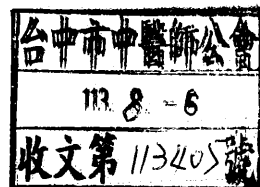 台中市中醫師公會
113. 8. - 6
收文第1134057號